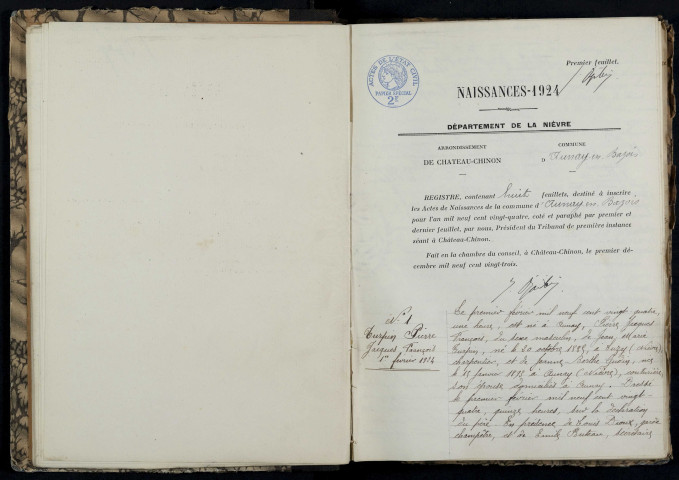 Premier feuillet.
ACTES DE L'ÉTAT CIVIL
PAPIER SPÉCIAL
2F
NAISSANCES-1924
DÉPARTEMENT DE LA NIÈVRE
ARRONDISSEMENT
DE CHATEAU-CHINON
COMMUNE
D'Aunay en Bazois
REGISTRE, contenant huit feuillets, destiné à inscrire
les Actes de Naissances de la commune d'Aunay en Bazois
pour l'an mil neuf cent vingt-quatre, coté et paraphé par premier et
dernier feuillet, par nous, Président du Tribunal de première instance
séant à Château-Chinon.
Fait en la chambre du conseil, à Château-Chinon, le premier dé-
cembre mil neuf cent vingt-trois.
N° 1
Turpin Pierre
Jacques François
1er février 1924
Le premier février mil neuf cent vingt quatre,
une heure, est né à Aunay, Pierre Jacques
François, du sexe masculin, de Jean Marie
Turpin, né le 20 octobre 1885, à Luzy (Nièvre)
charpentier, et de Jeanne Berthe, née
le 15 janvier 1893 à Aunay (Nièvre), couturière
son épouse domiciliés à Aunay. Dressé
le premier février mil neuf cent vingt-
quatre, quinze heures, sur la déclaration
du père. En présence de Louis, garde
champêtre, et de Emile, secrétaire